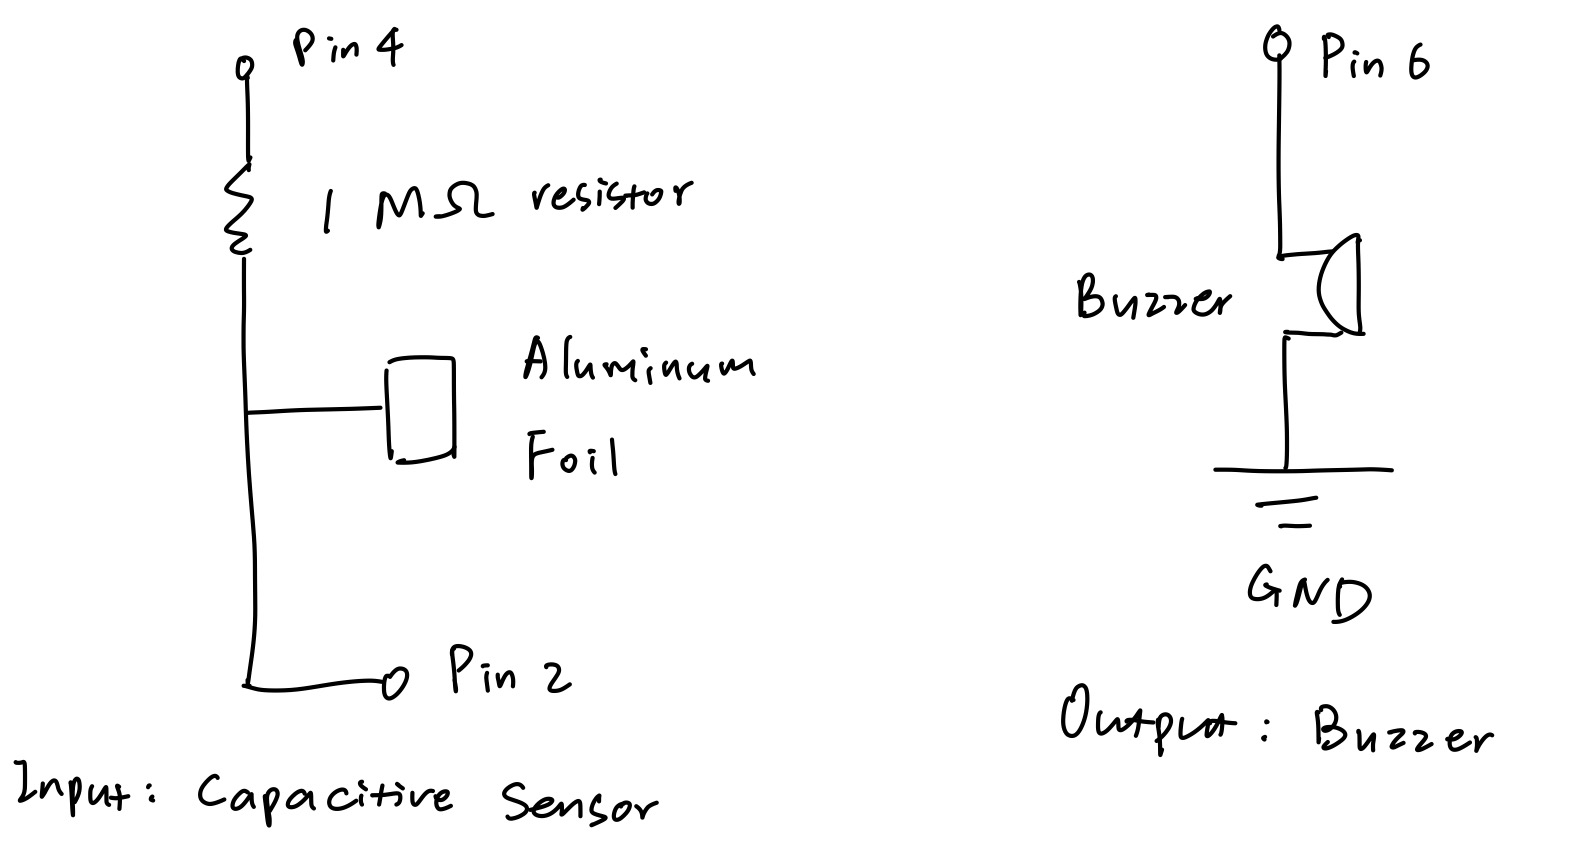 Pin 4
1 MΩ resistor
Aluminum
Foil
Pin 2
Input: Capacitive Sensor
Pin 6
Buzzer
GND
Output: Buzzer